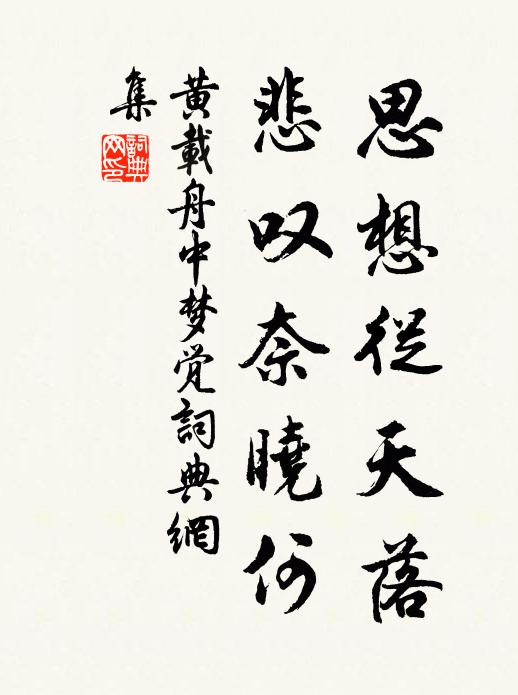 思想從天落
悲叹奈曉何
黃載舟中梦觉詞典網
集
詞典網印